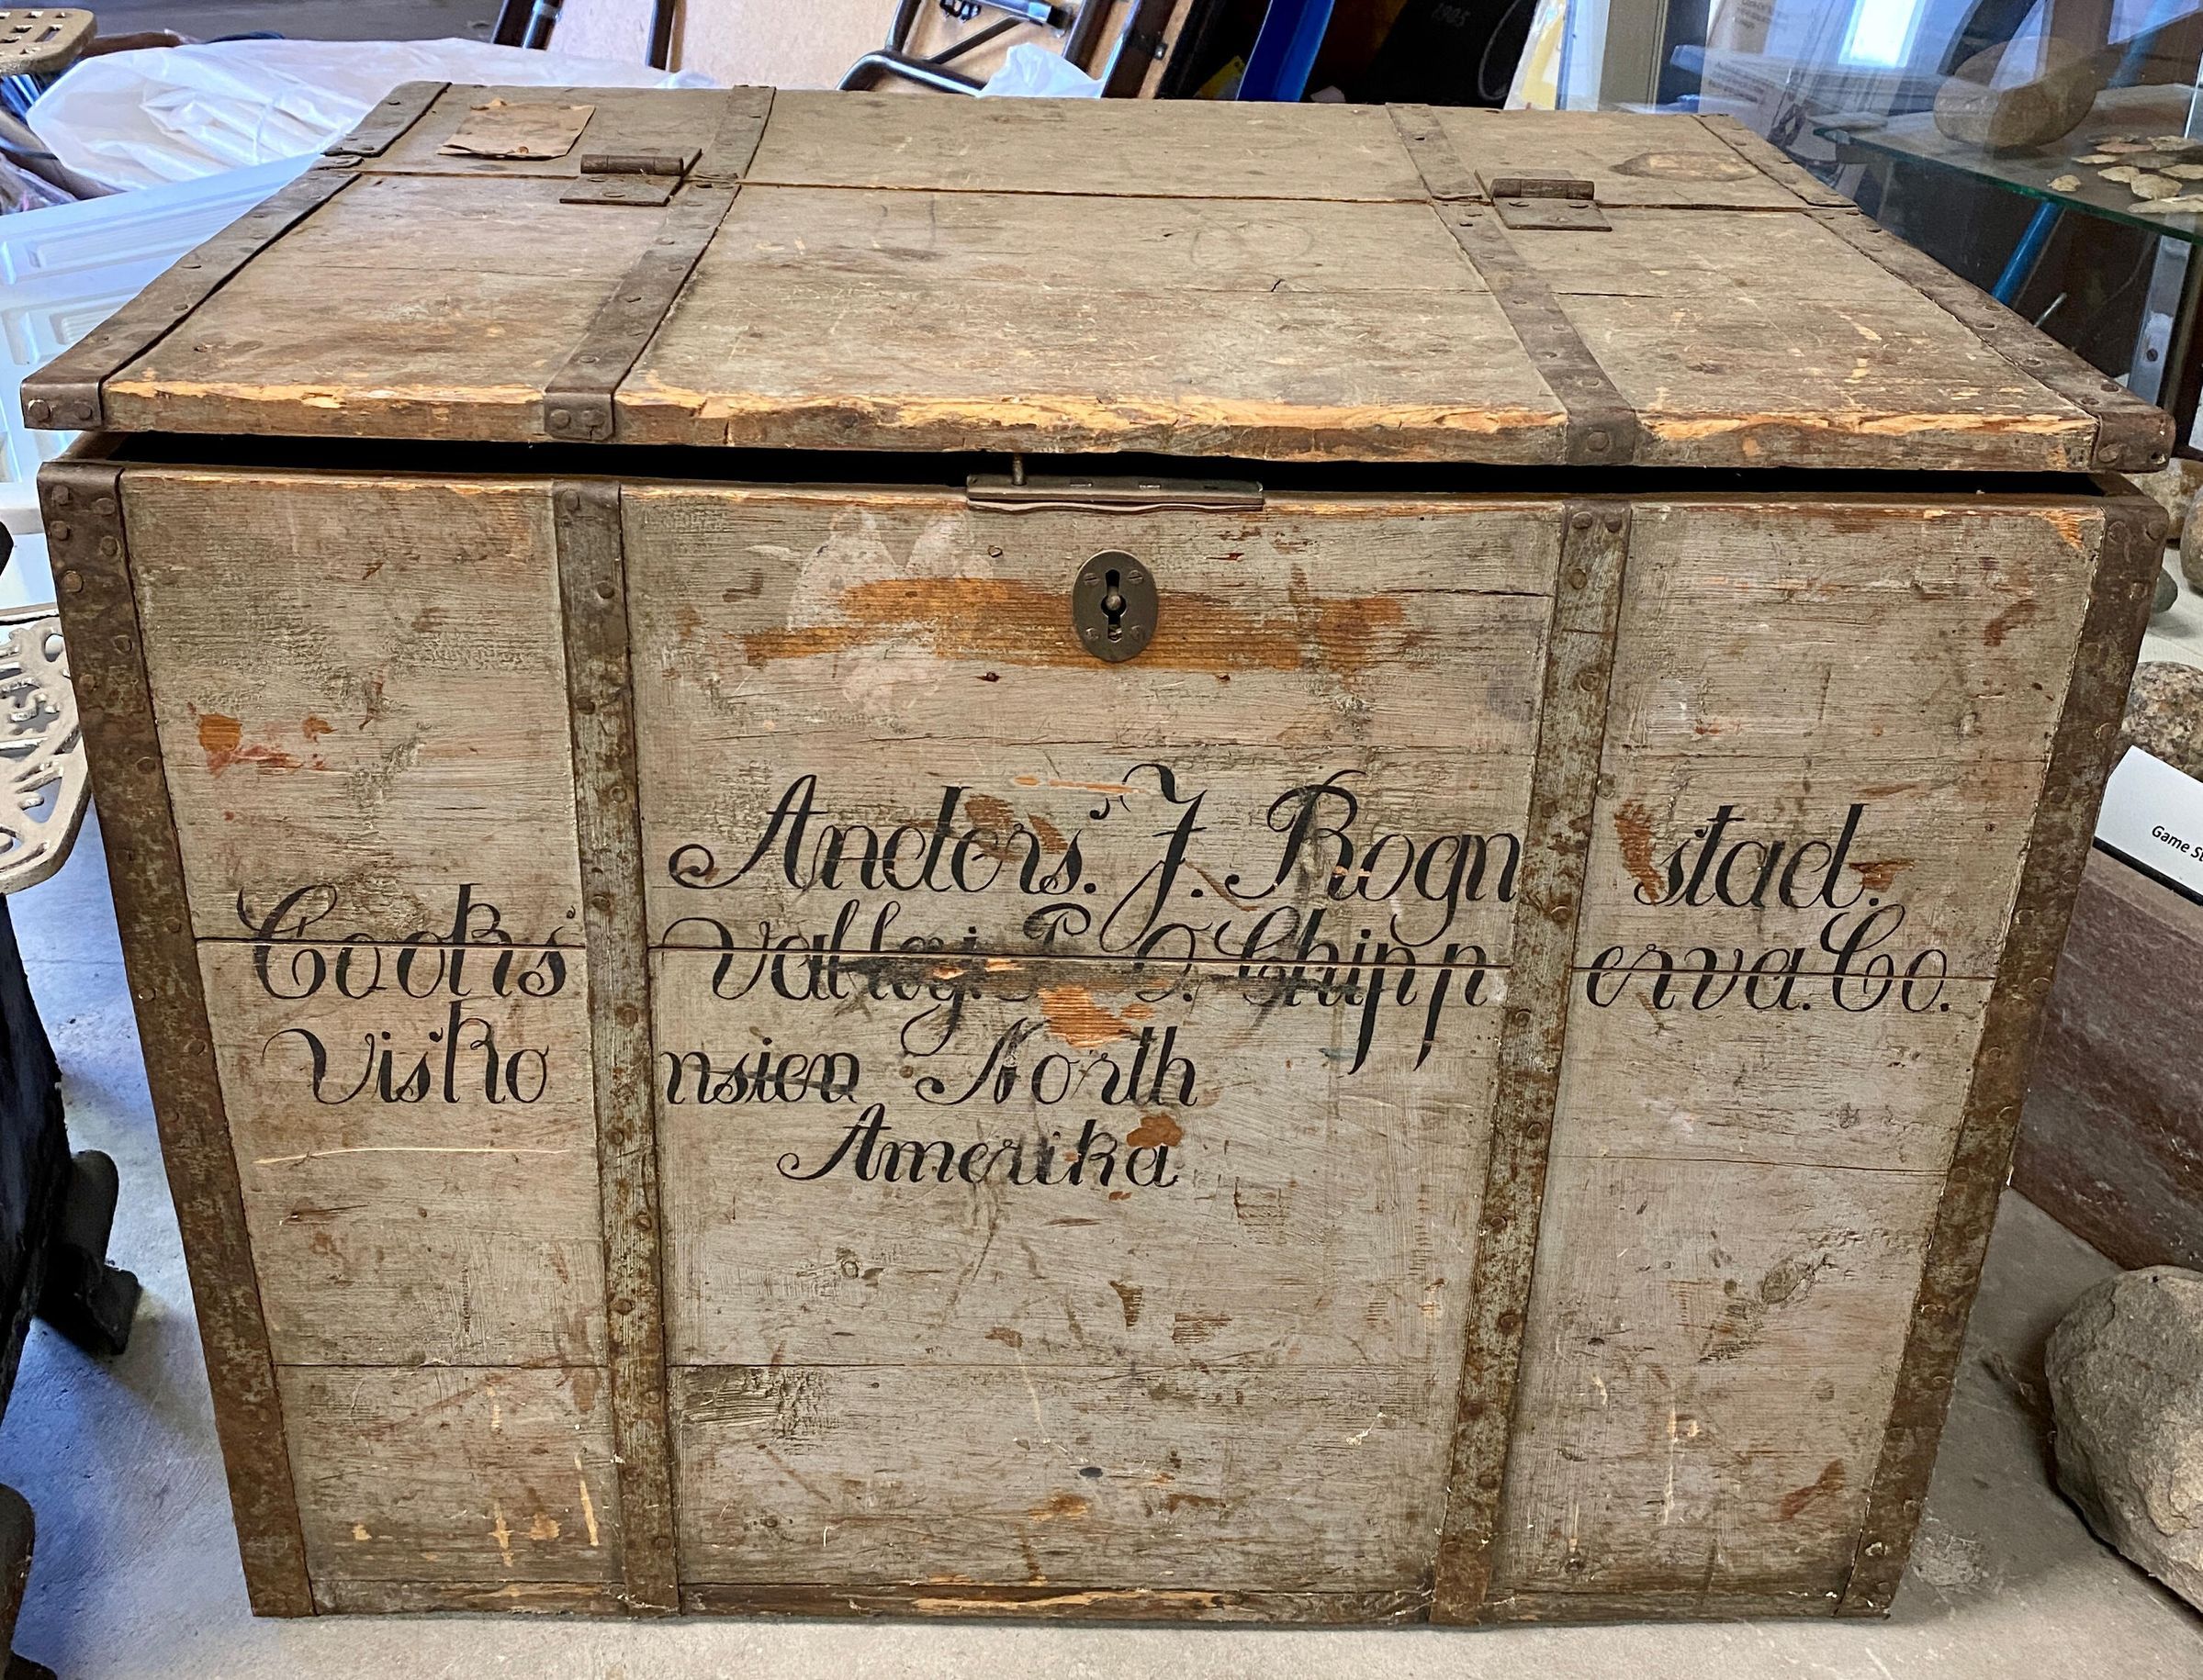 Anders. J. Rognstad.
Cooks Valley. P. O. Chipperva. Co.
Viskonsien North
Amerika
Game St